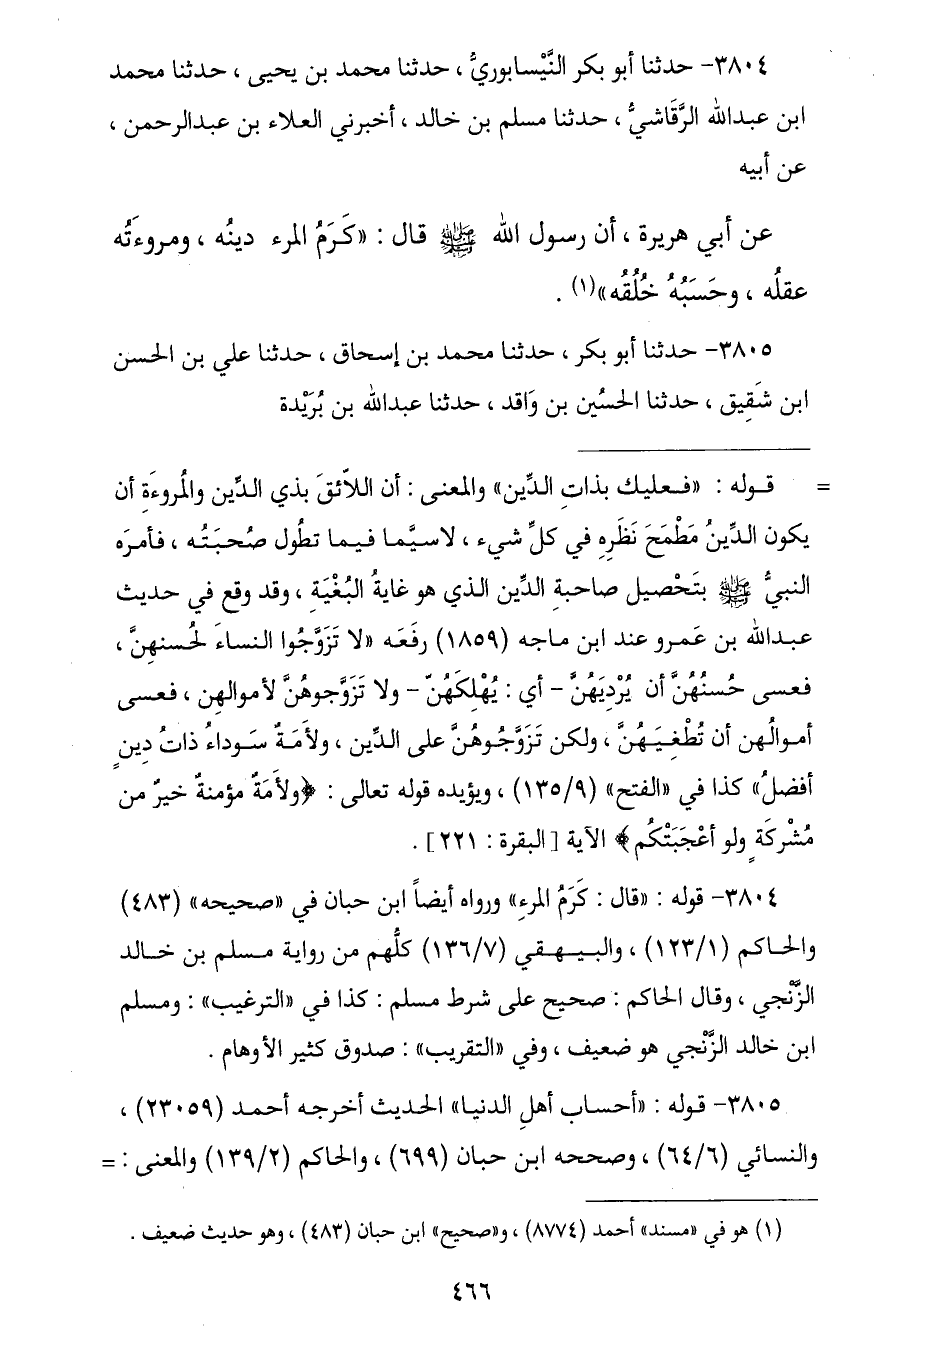 ٣٨٠٤- حدثنا أبو بكر النَّيْسابوريُّ ، حدثنا محمد بن يحيى ، حدثنا محمد
ابن عبدالله الرَّقَاشيُّ ، حدثنا مسلم بن خالد ، أخبرني العلاء بن عبدالرحمن ،
عن أبيه
عن أبي هريرة ، أن رسول الله ﷺ قال : «كَرَمُ المرء دينُه ، ومروءَتُه
عقلُه ، وحَسَبُهُ خُلُقُه»(١) .
٣٨٠٥- حدثنا أبو بكر ، حدثنا محمد بن إسحاق ، حدثنا علي بن الحسن
ابن شَقِيق ، حدثنا الحسُين بن وَاقد ، حدثنا عبدالله بن بُرَيْدة
= قوله : «فعليك بذاتِ الدِّين» والمعنى : أن اللاّئقَ بذي الدِّين والمُروءَةِ أن
يكون الدِّينُ مَطْمَحَ نَظَرِهِ في كلِّ شيء ، لاسيَّما فيما تطُول صُحبَتُه ، فأمرَه
النبيُّ ﷺ بتَحْصيل صاحبةِ الدِّين الذي هو غايةُ البُغْيَةِ ، وقد وقع في حديث
عبدالله بن عَمرو عند ابن ماجه (١٨٥٩) رفَعَه «لا تَزَوَّجُوا النساءَ لحُسنهنَّ ،
فعسى حُسنُهُنَّ أن يُرْدِيَهُنَّ - أي : يُهْلِكَهُنّ - ولا تَزَوَّجوهُنَّ لأموالهن ، فعسى
أموالُهن أن تُطْغِيَهُنَّ ، ولكن تَزَوَّجُوهُنَّ على الدِّين ، ولأَمَةٌ سَوداءُ ذاتُ دِينٍ
أفضلُ» كذا في «الفتح» (١٣٥/٩) ، ويؤيده قوله تعالى : ﴿ولأَمَةٌ مؤمنةٌ خيرٌ من
مُشْرِكَةٍ ولو أعْجَبَتْكُم﴾ الآية [البقرة : ٢٢١] .
٣٨٠٤- قوله : «قال : كَرَمُ المرءِ» ورواه أيضاً ابن حبان في «صحيحه» (٤٨٣)
والحاكم (١٢٣/١) ، والبيهقي (١٣٦/٧) كلُّهم من رواية مسلم بن خالد
الزَّنْجي ، وقال الحاكم : صحيح على شرط مسلم : كذا في «الترغيب» : ومسلم
ابن خالد الزَّنْجي هو ضعيف ، وفي «التقريب» : صدوق كثير الأوهام .
٣٨٠٥- قوله : «أحساب أهلِ الدنيا» الحديث أخرجه أحمد (٢٣٠٥٩) ،
والنسائي (٦٤/٦) ، وصححه ابن حبان (٦٩٩) ، والحاكم (١٣٩/٢) والمعنى : =
(١) هو في «مسند» أحمد (٨٧٧٤) ، و«صحيح» ابن حبان (٤٨٣) ، وهو حديث ضعيف .
٤٦٦